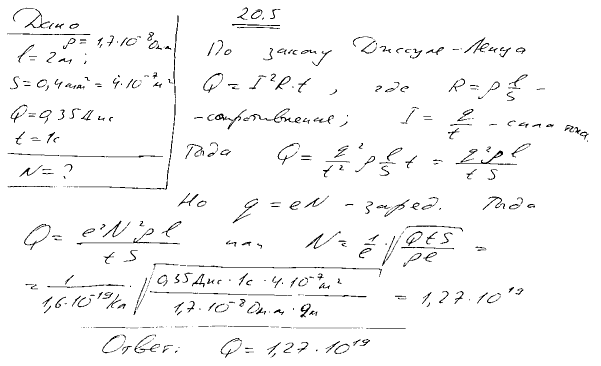 20.5
Дано
ρ = 1,7·10⁻⁸ Ом·м
l = 2м;
S = 0,4 мм² = 4·10⁻⁷ м²
Q = 0,35 Дж
t = 1с
N = ?
По закону Джоуля-Ленца
Q = I²R·t, где R = ρ l/S -
- сопротивление; I = q/t - сила тока.
Тогда Q = q²/t² ρ l/S t = q²ρl/tS
Но q = eN - заряд. Тогда
Q = e²N²ρl/tS или N = 1/e · √(QtS/ρl) =
= 1/(1,6·10⁻¹⁹ Кл) · √(0,35 Дж · 1с · 4·10⁻⁷ м² / 1,7·10⁻⁸ Ом·м · 2м) = 1,27·10¹⁹
Ответ: Q = 1,27·10¹⁹